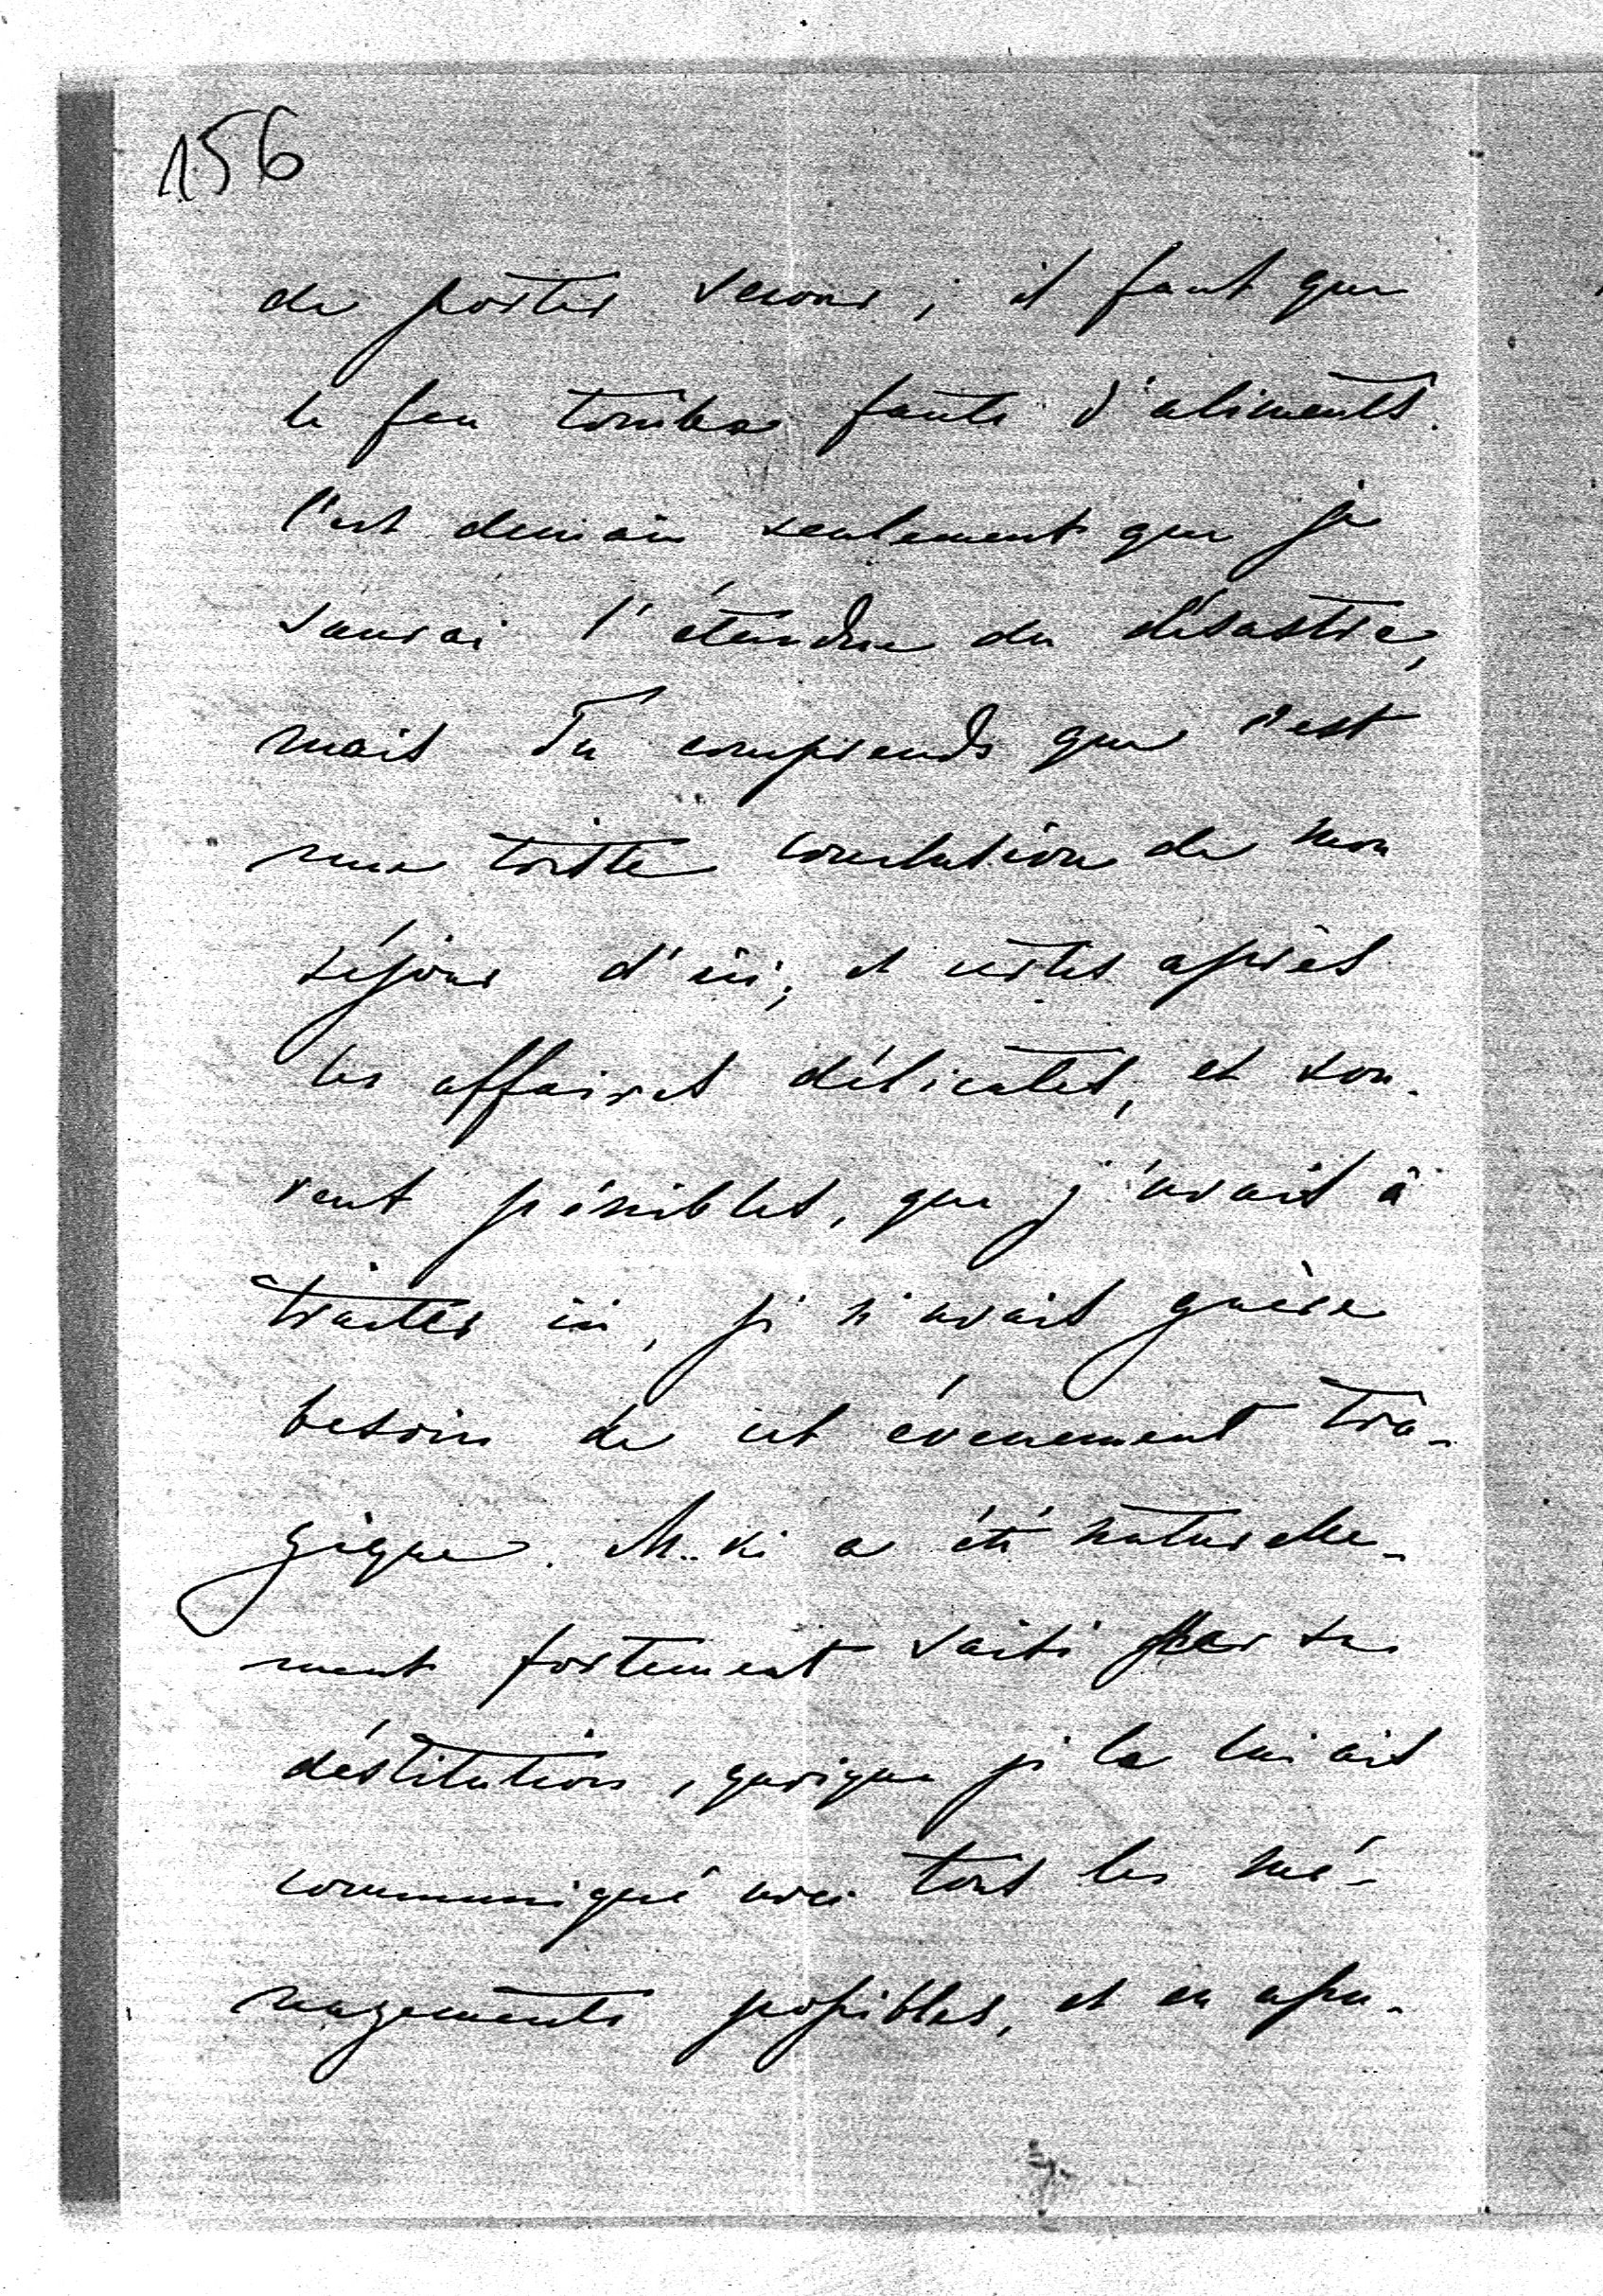 156
de porter secours; il faut que
le feu tombe faute d'aliments.
C'est demain seulement que je
saurai l'étendue du désastre,
mais Tu comprends que c'est
une triste conclusion de mon
séjour d'ici; et certes après
les affaires délicates, et sou-
vent pénibles, que j'avais à
traiter ici, je n'avais guère
besoin de cet évènement tra-
gique. M..ki a été naturelle-
ment fortement saisi par sa
déstitution, quoique je la lui ais
communiqué avec tous les mé-
nagements possibles, et en apu-